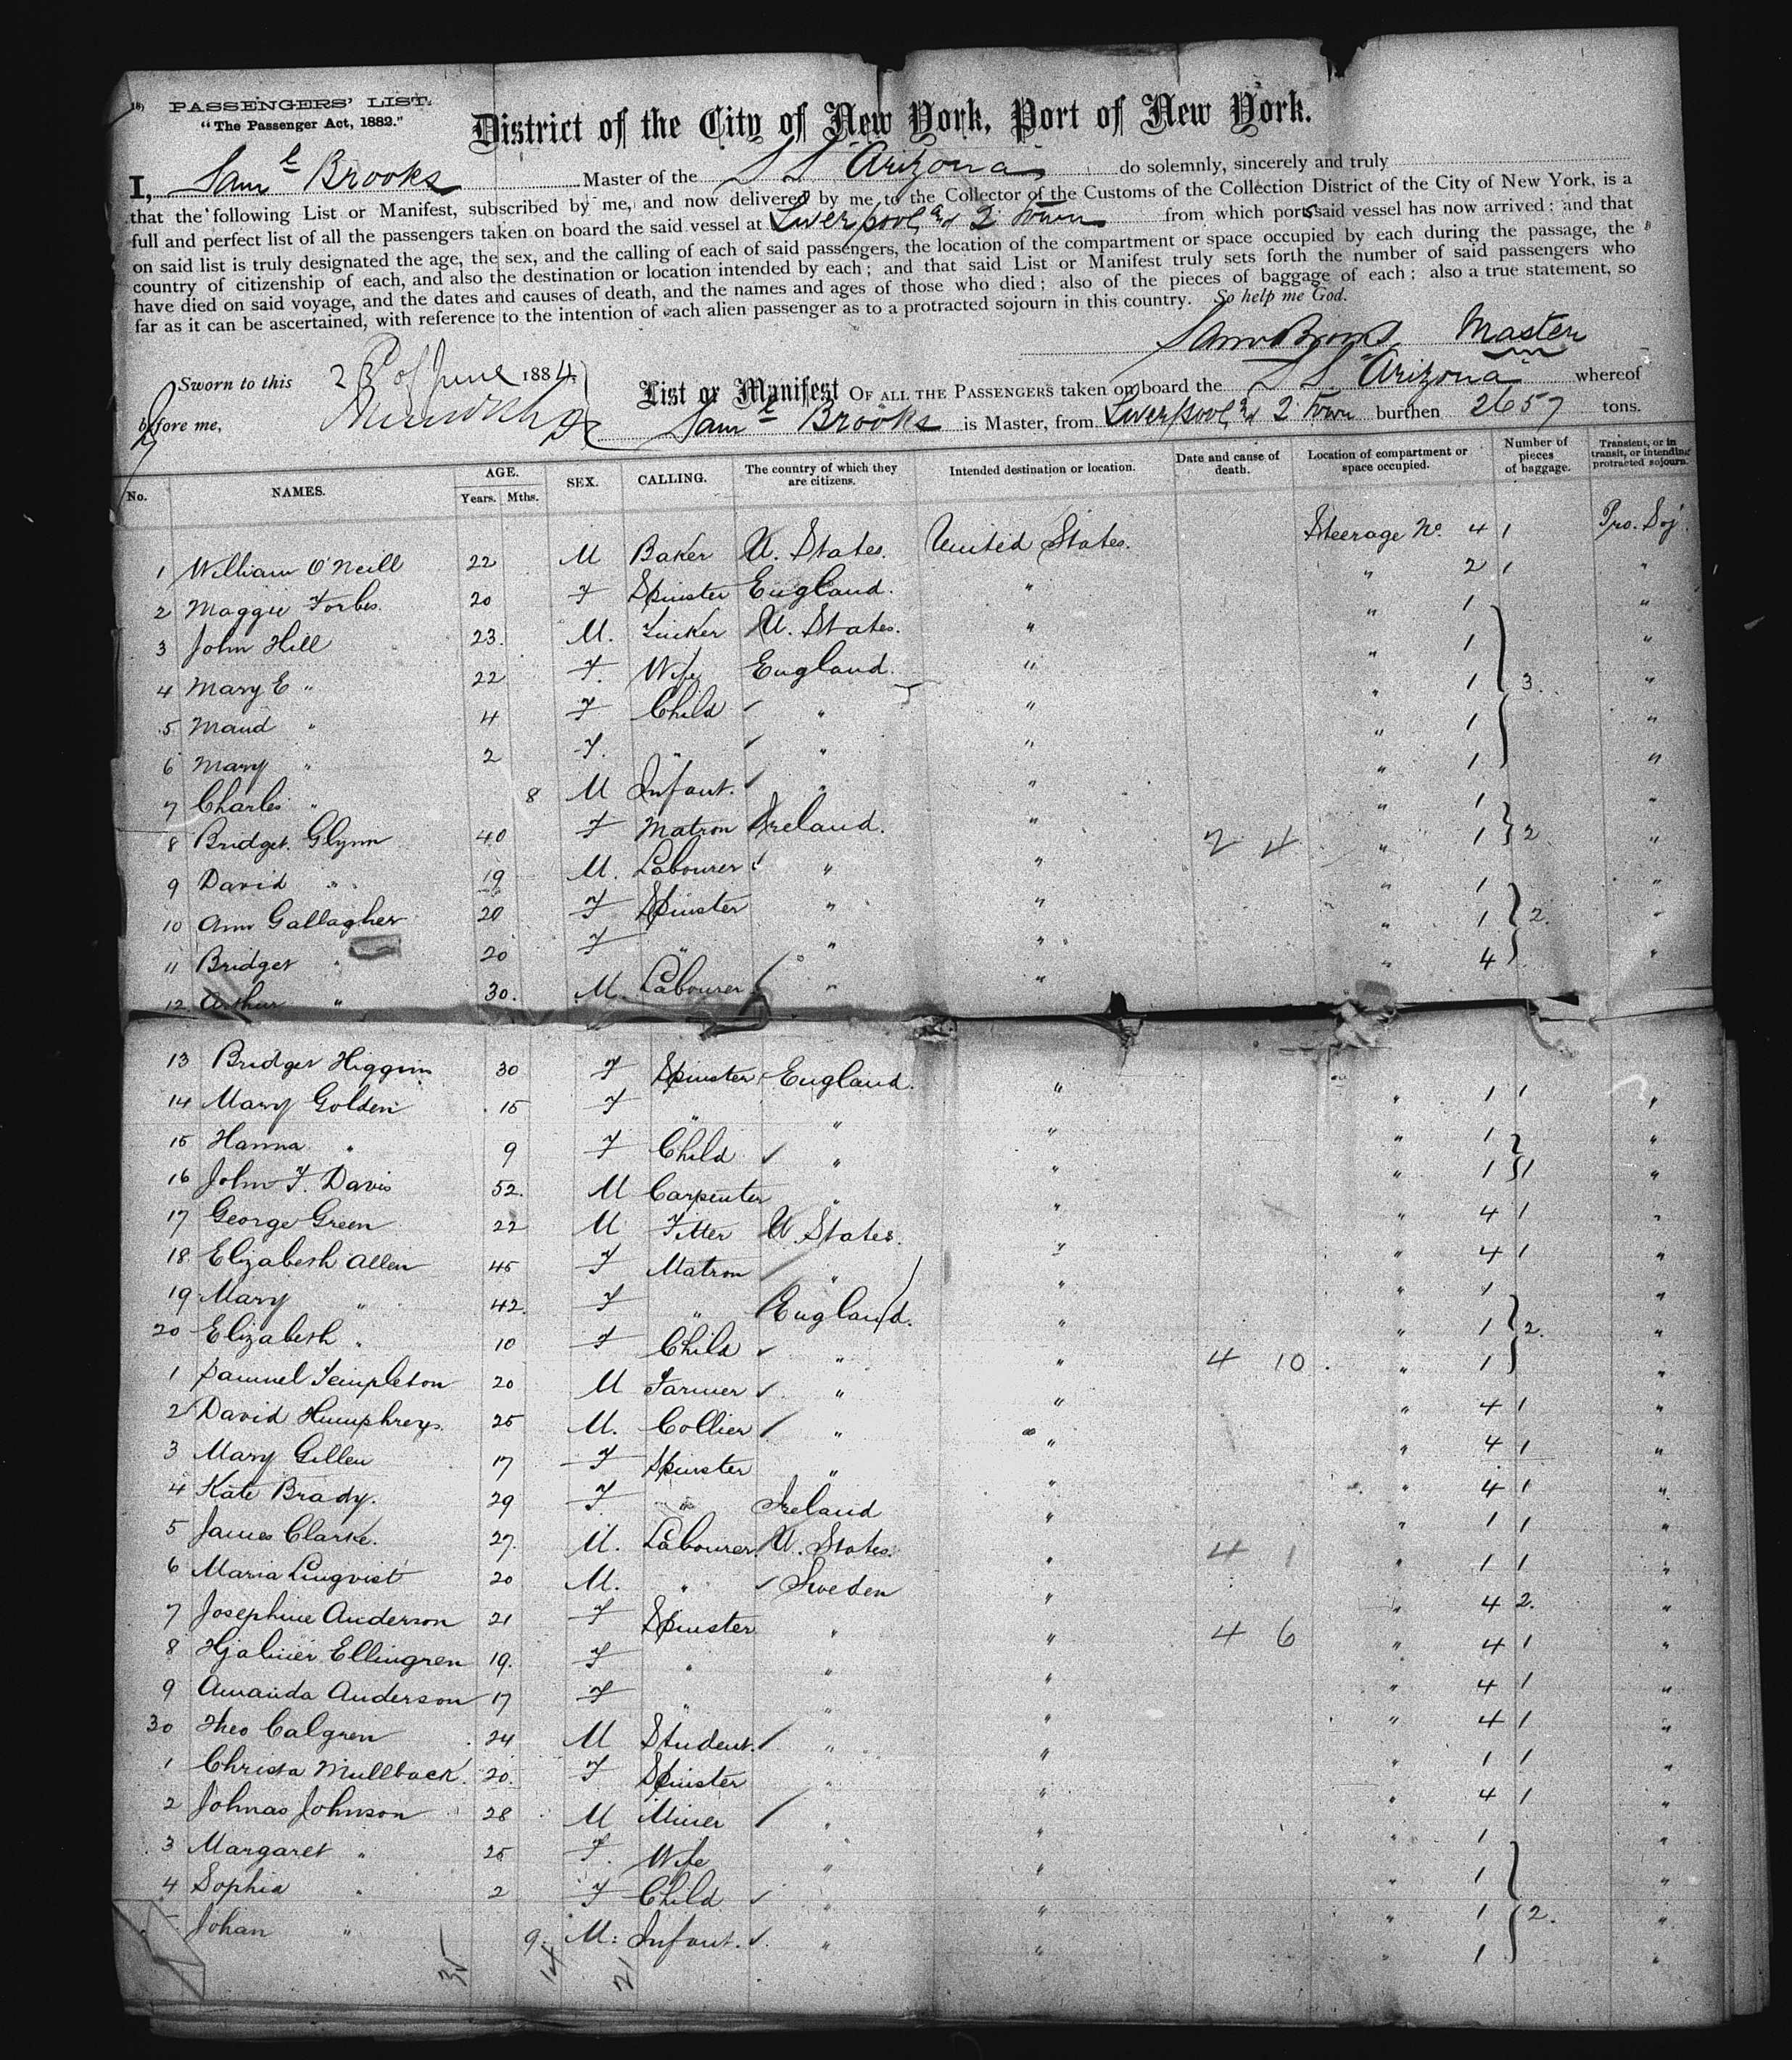 PASSENGERS' LIST.
"The Passenger Act, 1882."
District of the City of New York, Port of New York.
I, Saml Brooks Master of the S S Arizona do solemnly, sincerely and truly
that the following List or Manifest, subscribed by me, and now delivered by me to the Collector of the Customs of the Collection District of the City of New York, is a
full and perfect list of all the passengers taken on board the said vessel at Liverpool and 2 Town from which ports said vessel has now arrived: and that
on said list is truly designated the age, the sex, and the calling of each of said passengers, the location of the compartment or space occupied by each during the passage, the
country of citizenship of each, and also the destination or location intended by each; and that said List or Manifest truly sets forth the number of said passengers who
have died on said voyage, and the dates and causes of death, and the names and ages of those who died; also of the pieces of baggage of each; also a true statement, so
far as it can be ascertained, with reference to the intention of each alien passenger as to a protracted sojourn in this country. So help me God.
Saml Brooks Master
Sworn to this 23d of June 1884
before me,
List or Manifest OF ALL THE PASSENGERS taken on board the S S Arizona whereof
Saml Brooks is Master, from Liverpool and 2 Town burthen 2657 tons.
No. NAMES. AGE. Years. Mths. SEX. CALLING. The country of which they are citizens. Intended destination or location. Date and cause of death. Location of compartment or space occupied. Number of pieces of baggage. Transient, or in transit, or intending protracted sojourn.
1 William O'Neill 22 M Baker U. States. United States. Steerage No. 4 1 Pro. Soj.
2 Maggie Forbes 20 F Spinster England. " " 2 1 "
3 John Hill 23. M. Tinker U. States. " " 1 "
4 Mary E " 22 F. Wife England. " " 1 "
5 Maud " 4 F Child " " " 1 3. "
6 Mary " 2 F. " " " " 1 "
7 Charles " 8 M Infant. " " " 1 "
8 Bridget Glynn 40 F Matron Ireland. " " 1 "
9 David " 19 M. Labourer " " 2 4 " 1 2 "
10 Ann Gallagher 20 F Spinster " " " 1 "
11 Bridget " 20 F " " " " 1 2. "
12 Arthur " 30. M. Labourer " " " 4 "
13 Bridget Higgins 30 F Spinster England. " " 1 1 "
14 Mary Golden 15 F " " " " 1 "
15 Hanna " 9 F Child " " " 1 1 "
16 John F. Davis 52. M Carpenter " " " 4 1 "
17 George Green 22 M Fitter U. States. " " 4 1 "
18 Elizabeth Allen 45 F Matron " " " 1 "
19 Mary " 42. F " England. " " 1 2. "
20 Elizabeth " 10 F Child " " 4 10 " 1 "
1 Samuel Templeton 20 M Farmer " " " 4 1 "
2 David Humphreys. 25 M. Collier " " " 4 1 "
3 Mary Gillen 17 F Spinster " " " 4 1 "
4 Kate Brady. 29 F " Ireland " " 1 1 "
5 James Clarke. 27. M. Labourer. U. States. " 4 1 " 1 1 "
6 Maria Linqvist 20 M. " Sweden " " 4 2. "
7 Josephine Anderson 21 F Spinster " " 4 6 " 4 1 "
8 Hjalmer Ellingren 19. F " " " " 4 1 "
9 Amanda Anderson 17 F " " " " 4 1 "
30 Theo Calgren 24 M Student. " " " 1 1 "
1 Christa Mullback. 20. F Spinster " " " 4 1 "
2 Johnas Johnson 28 M Miner " " " 1 "
3 Margaret " 25 F. Wife " " " 1 "
4 Sophia " 2 F Child " " " 1 2. "
Johan " 9. M. Infant. " " " 1 "
35 14 21